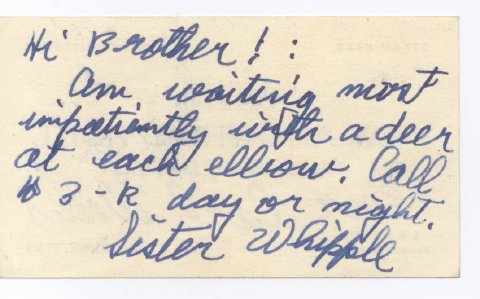 Hi Brother! :
Am waiting most
impatiently with a deer
at each elbow. Call
# 3-R day or night.
Sister Whipple